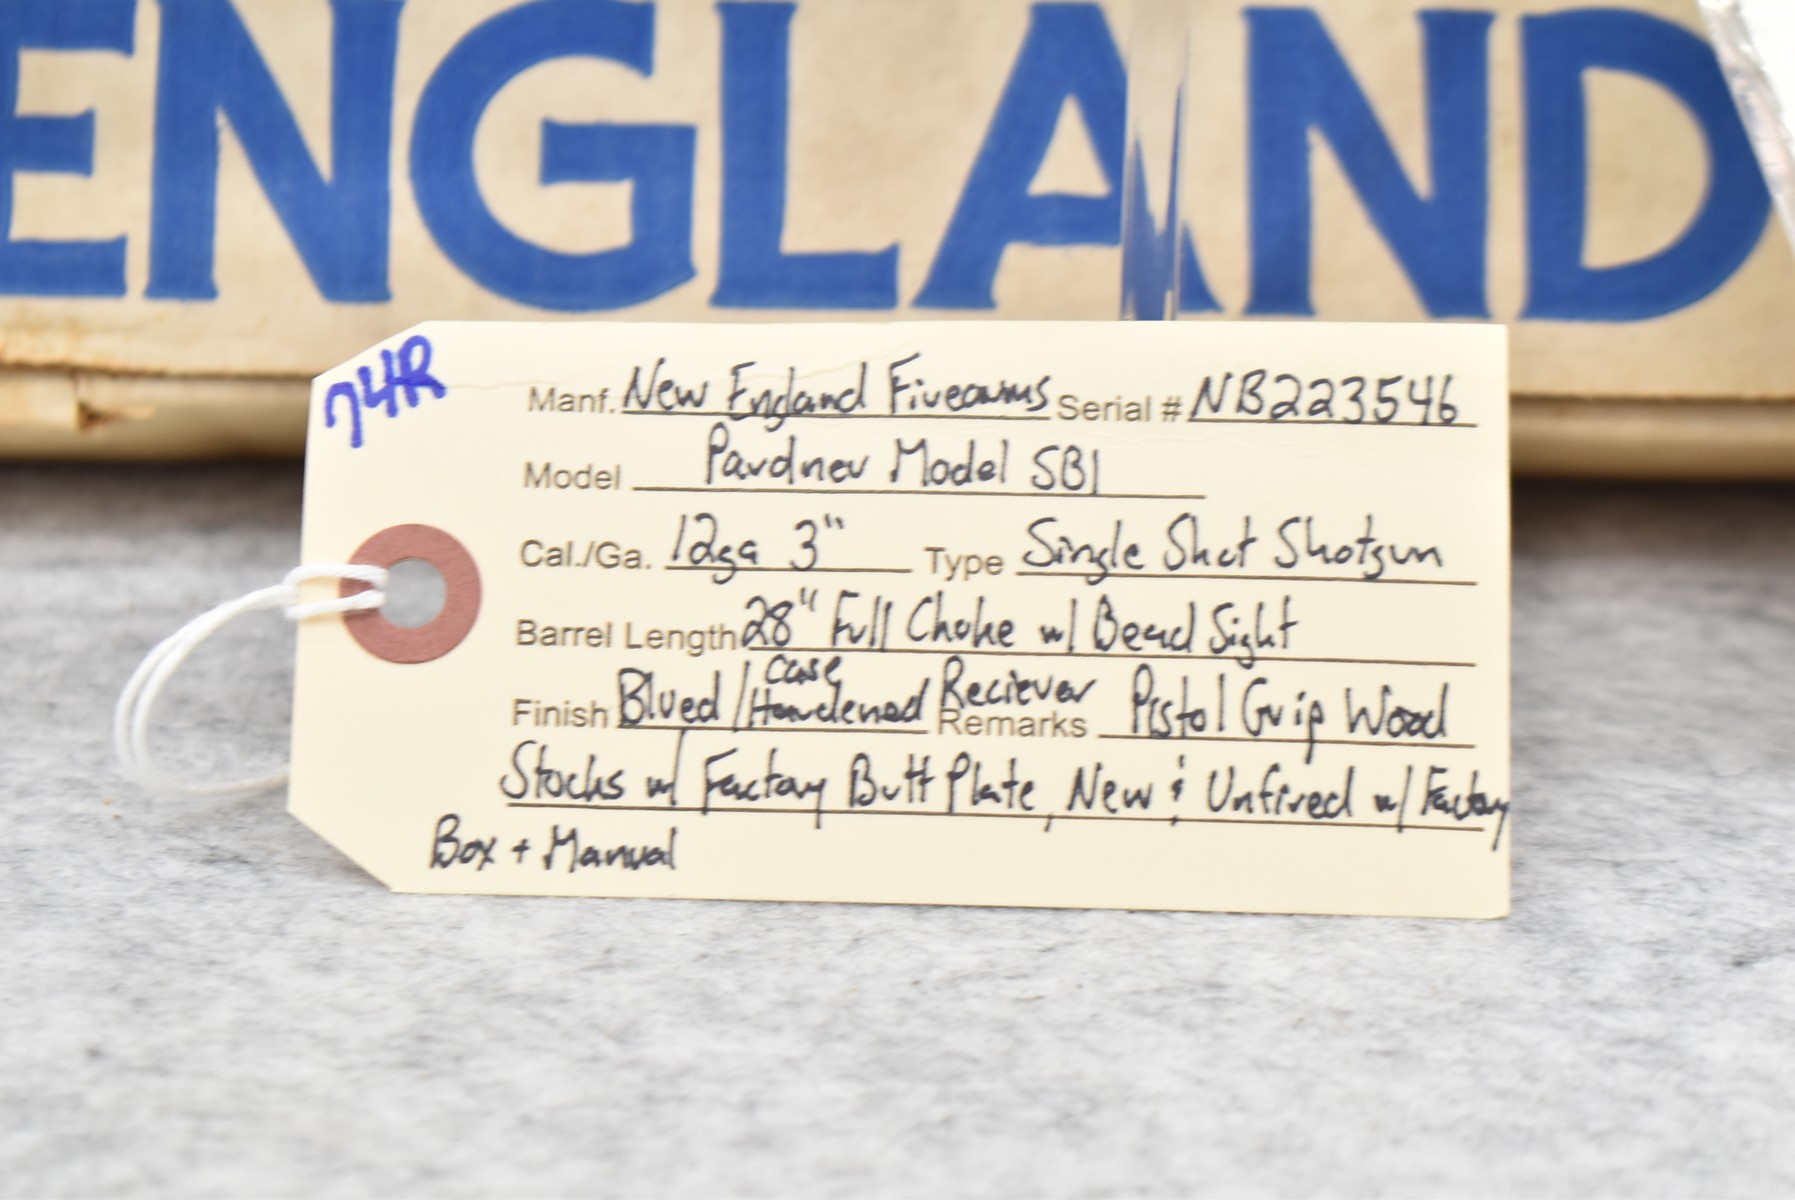 ENGLAND
74R
Manf. New England Firearms Serial # NB223546
Model Pardner Model SB1
Cal./Ga. 12ga 3" Type Single Shot Shotgun
Barrel Length 28" Full Choke w/ Bead Sight
Finish Blued / Case Hardened Reciever Remarks Pistol Grip Wood
Stocks w/ Factory Butt Plate, New & Unfired w/ Factory
Box + Manual